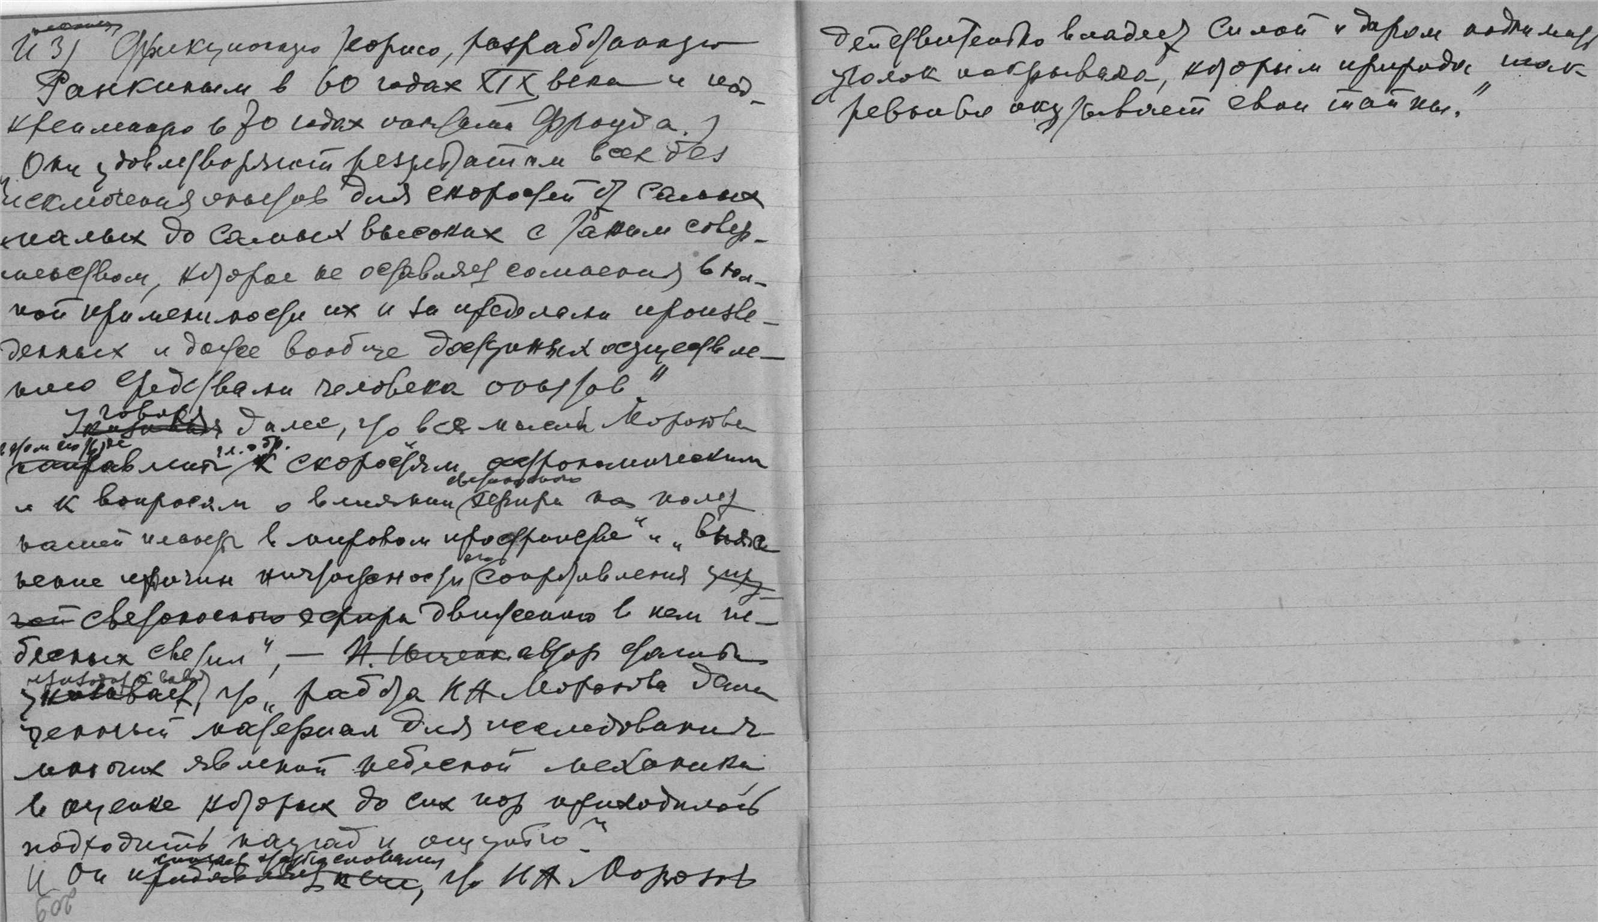 и 3) Фрикционную теорию, разработанную
Ранкиным в 60 годах XIX века и под-
крепленную в 70 годах опытами Фрауда.)
"Они удовлетворяют результатам всех без
исключения опытов для скоростей от самых
малых до самых высоких с таким совер-
шенством, которое не оставляет сомнения в пол-
ной применимости их и за пределами произве-
денных и даже вообще доступных осуществле-
нию средствами человека опытов"
говоря
Указывая далее, что все мысли Морозова
гл. обр.
направлены к скоростям астрономическим
светоносного
и к вопросам о влиянии эфира на полет
нашей планеты в мировом пространстве" и "выяс
его
нение причин ничтожности сопротивления упру-
гой светоносного эфира движению в нем не-
бесных светил", — автор статьи
указывает, что "работа НА Морозова дала
ценный материал для исследования
многих явлений небесной механики,
в оценке которых до сих пор приходилось
подходить наугад и ощупью".
И он, что НА Морозов
действительно владеет силой и даром поднимать
уголок покрывала, которым природа так
ревниво окутывает свои тайны."